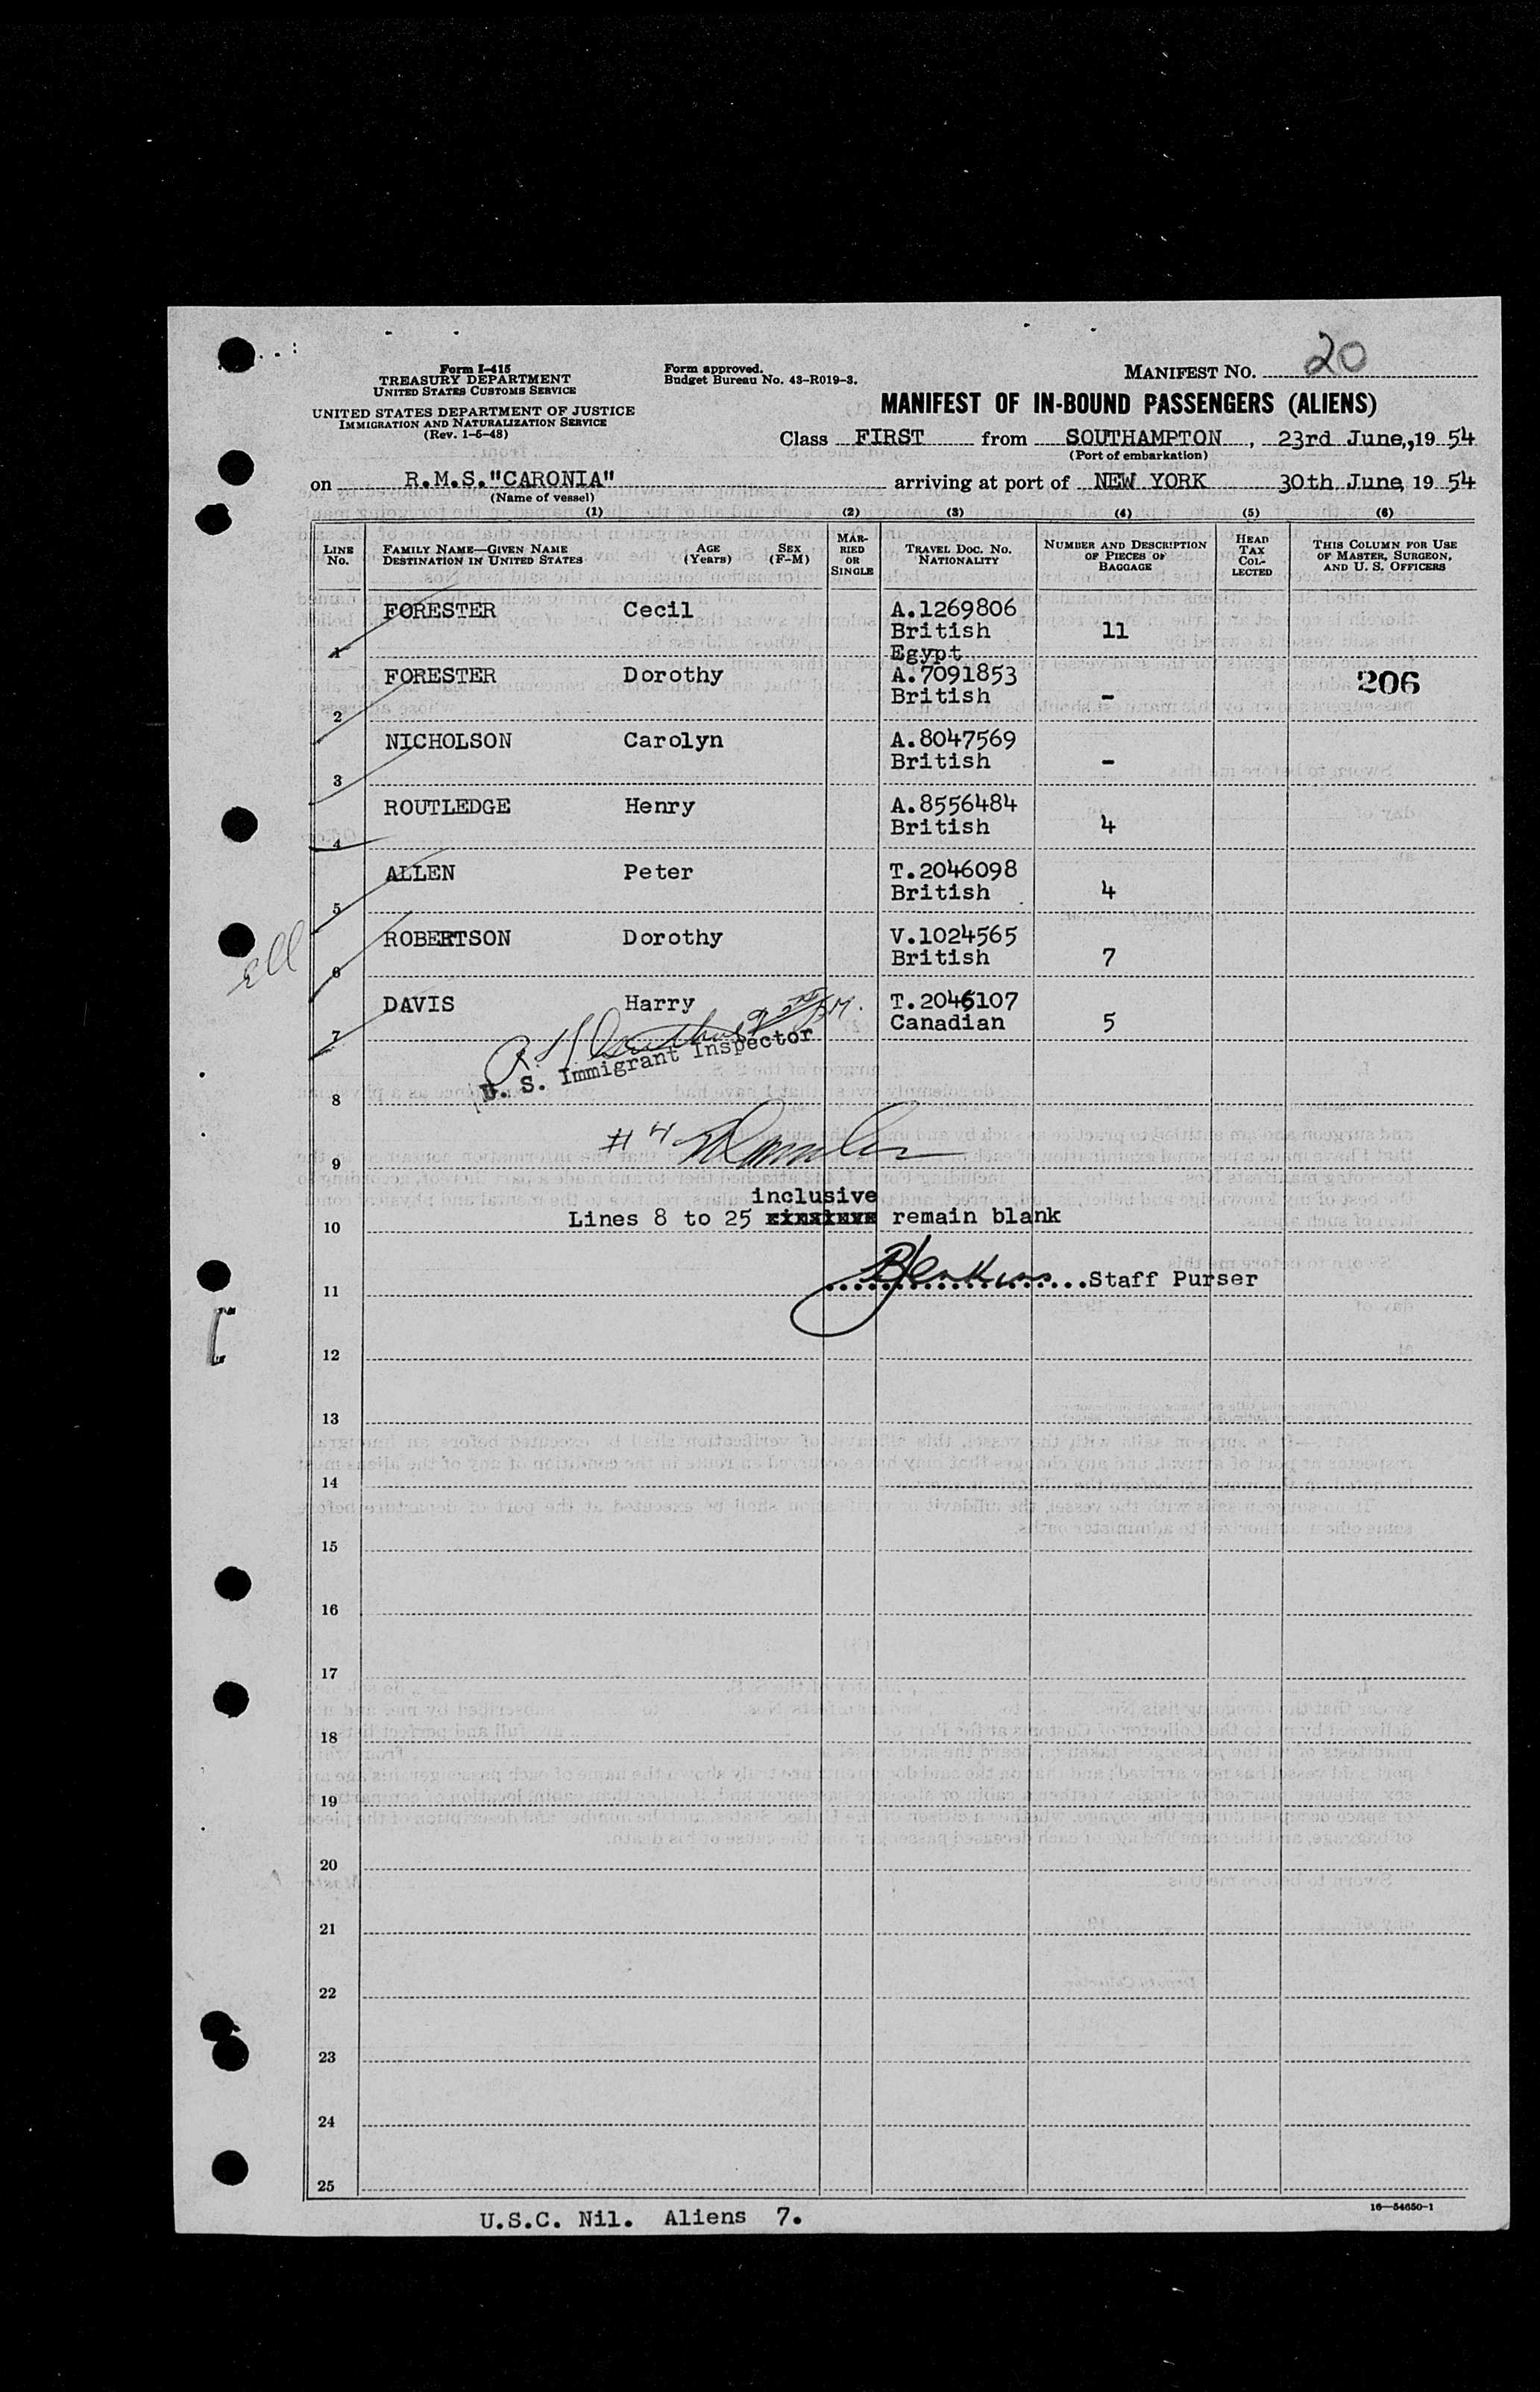 20
Form I-415
TREASURY DEPARTMENT
UNITED STATES CUSTOMS SERVICE
Form approved.
Budget Bureau No. 43-R019-3.
MANIFEST NO.
UNITED STATES DEPARTMENT OF JUSTICE
IMMIGRATION AND NATURALIZATION SERVICE
(Rev. 1-5-48)
MANIFEST OF IN-BOUND PASSENGERS (ALIENS)
Class FIRST from SOUTHAMPTON, 23rd June, 19 54
(Port of embarkation)
on R.M.S."CARONIA" arriving at port of NEW YORK 30th June, 19 54
(Name of vessel)
(1) (2) (3) (4) (5) (6)
LINE NO.
FAMILY NAME—GIVEN NAME
DESTINATION IN UNITED STATES
AGE (Years)
SEX (F-M)
MARRIED OR SINGLE
TRAVEL DOC. NO.
NATIONALITY
NUMBER AND DESCRIPTION OF PIECES OF BAGGAGE
HEAD TAX COLLECTED
THIS COLUMN FOR USE OF MASTER, SURGEON, AND U. S. OFFICERS
1 FORESTER Cecil A.1269806
British 11
Egypt
2 FORESTER Dorothy A.7091853 206
British -
3 NICHOLSON Carolyn A.8047569
British -
4 ROUTLEDGE Henry A.8556484
British 4
5 ALLEN Peter T.2046098
British 4
6 ROBERTSON Dorothy V.1024565
British 7
7 DAVIS Harry T.2046107
Canadian 5
U. S. Immigrant Inspector
8
# 4
9
inclusive
10 Lines 8 to 25 remain blank
11 BJenkins Staff Purser
12
13
14
15
16
17
18
19
20
21
22
23
24
25
16—54650-1
U.S.C. Nil. Aliens 7.